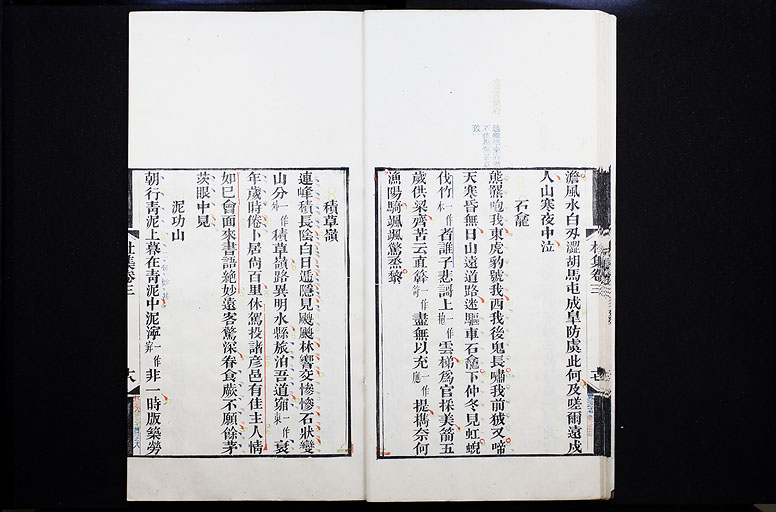 澹風水白刃澀胡馬屯成皐防虞此何及嗟爾遠戍
人山寒夜中泣
石龕
熊羆咆我東虎豹號我西我後鬼長嘯我前狨又啼
天寒昏無日山遠道路迷驅車石龕下仲冬見虹蜺
伐竹一作木者誰子悲謌上一作抱雲梯爲官採美箭五
歲供梁齊苦云直簳一作笴盡無以充一作應提攜奈何
漁陽騎颯颯驚烝黎
杜集卷三
積草嶺
連峰積長陰白日遞隱見颼颼林響交慘慘石狀變
山分一作外積草嶺路異明水縣旅泊吾道窮一作東衰
年歲時倦卜居尚百里休駕投諸彥邑有佳主人情
如已會面來書語絕妙遠客驚深眷食蕨不願餘茅
茨眼中見
泥功山
朝行青泥上暮在青泥中泥濘一作非一時版築勞
杜集卷三